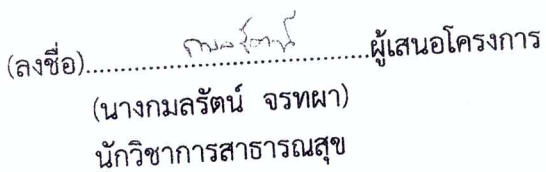 (ลงชื่อ)......กมลรัตน์......ผู้เสนอโครงการ
(นางกมลรัตน์ จรทผา)
นักวิชาการสาธารณสุข